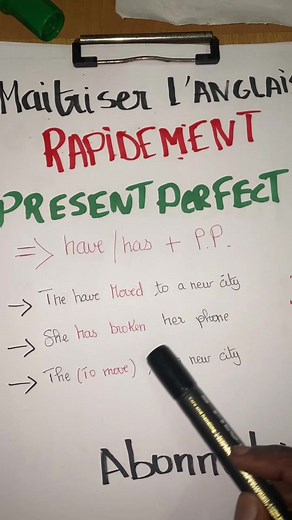 Maitriser L'ANGLAIS
RAPIDEMENT
PRESENT PERFECT
=> have/has + P.P.
→ The have Moved to a new city
→ She has broken her phone
→ The (To move) new city